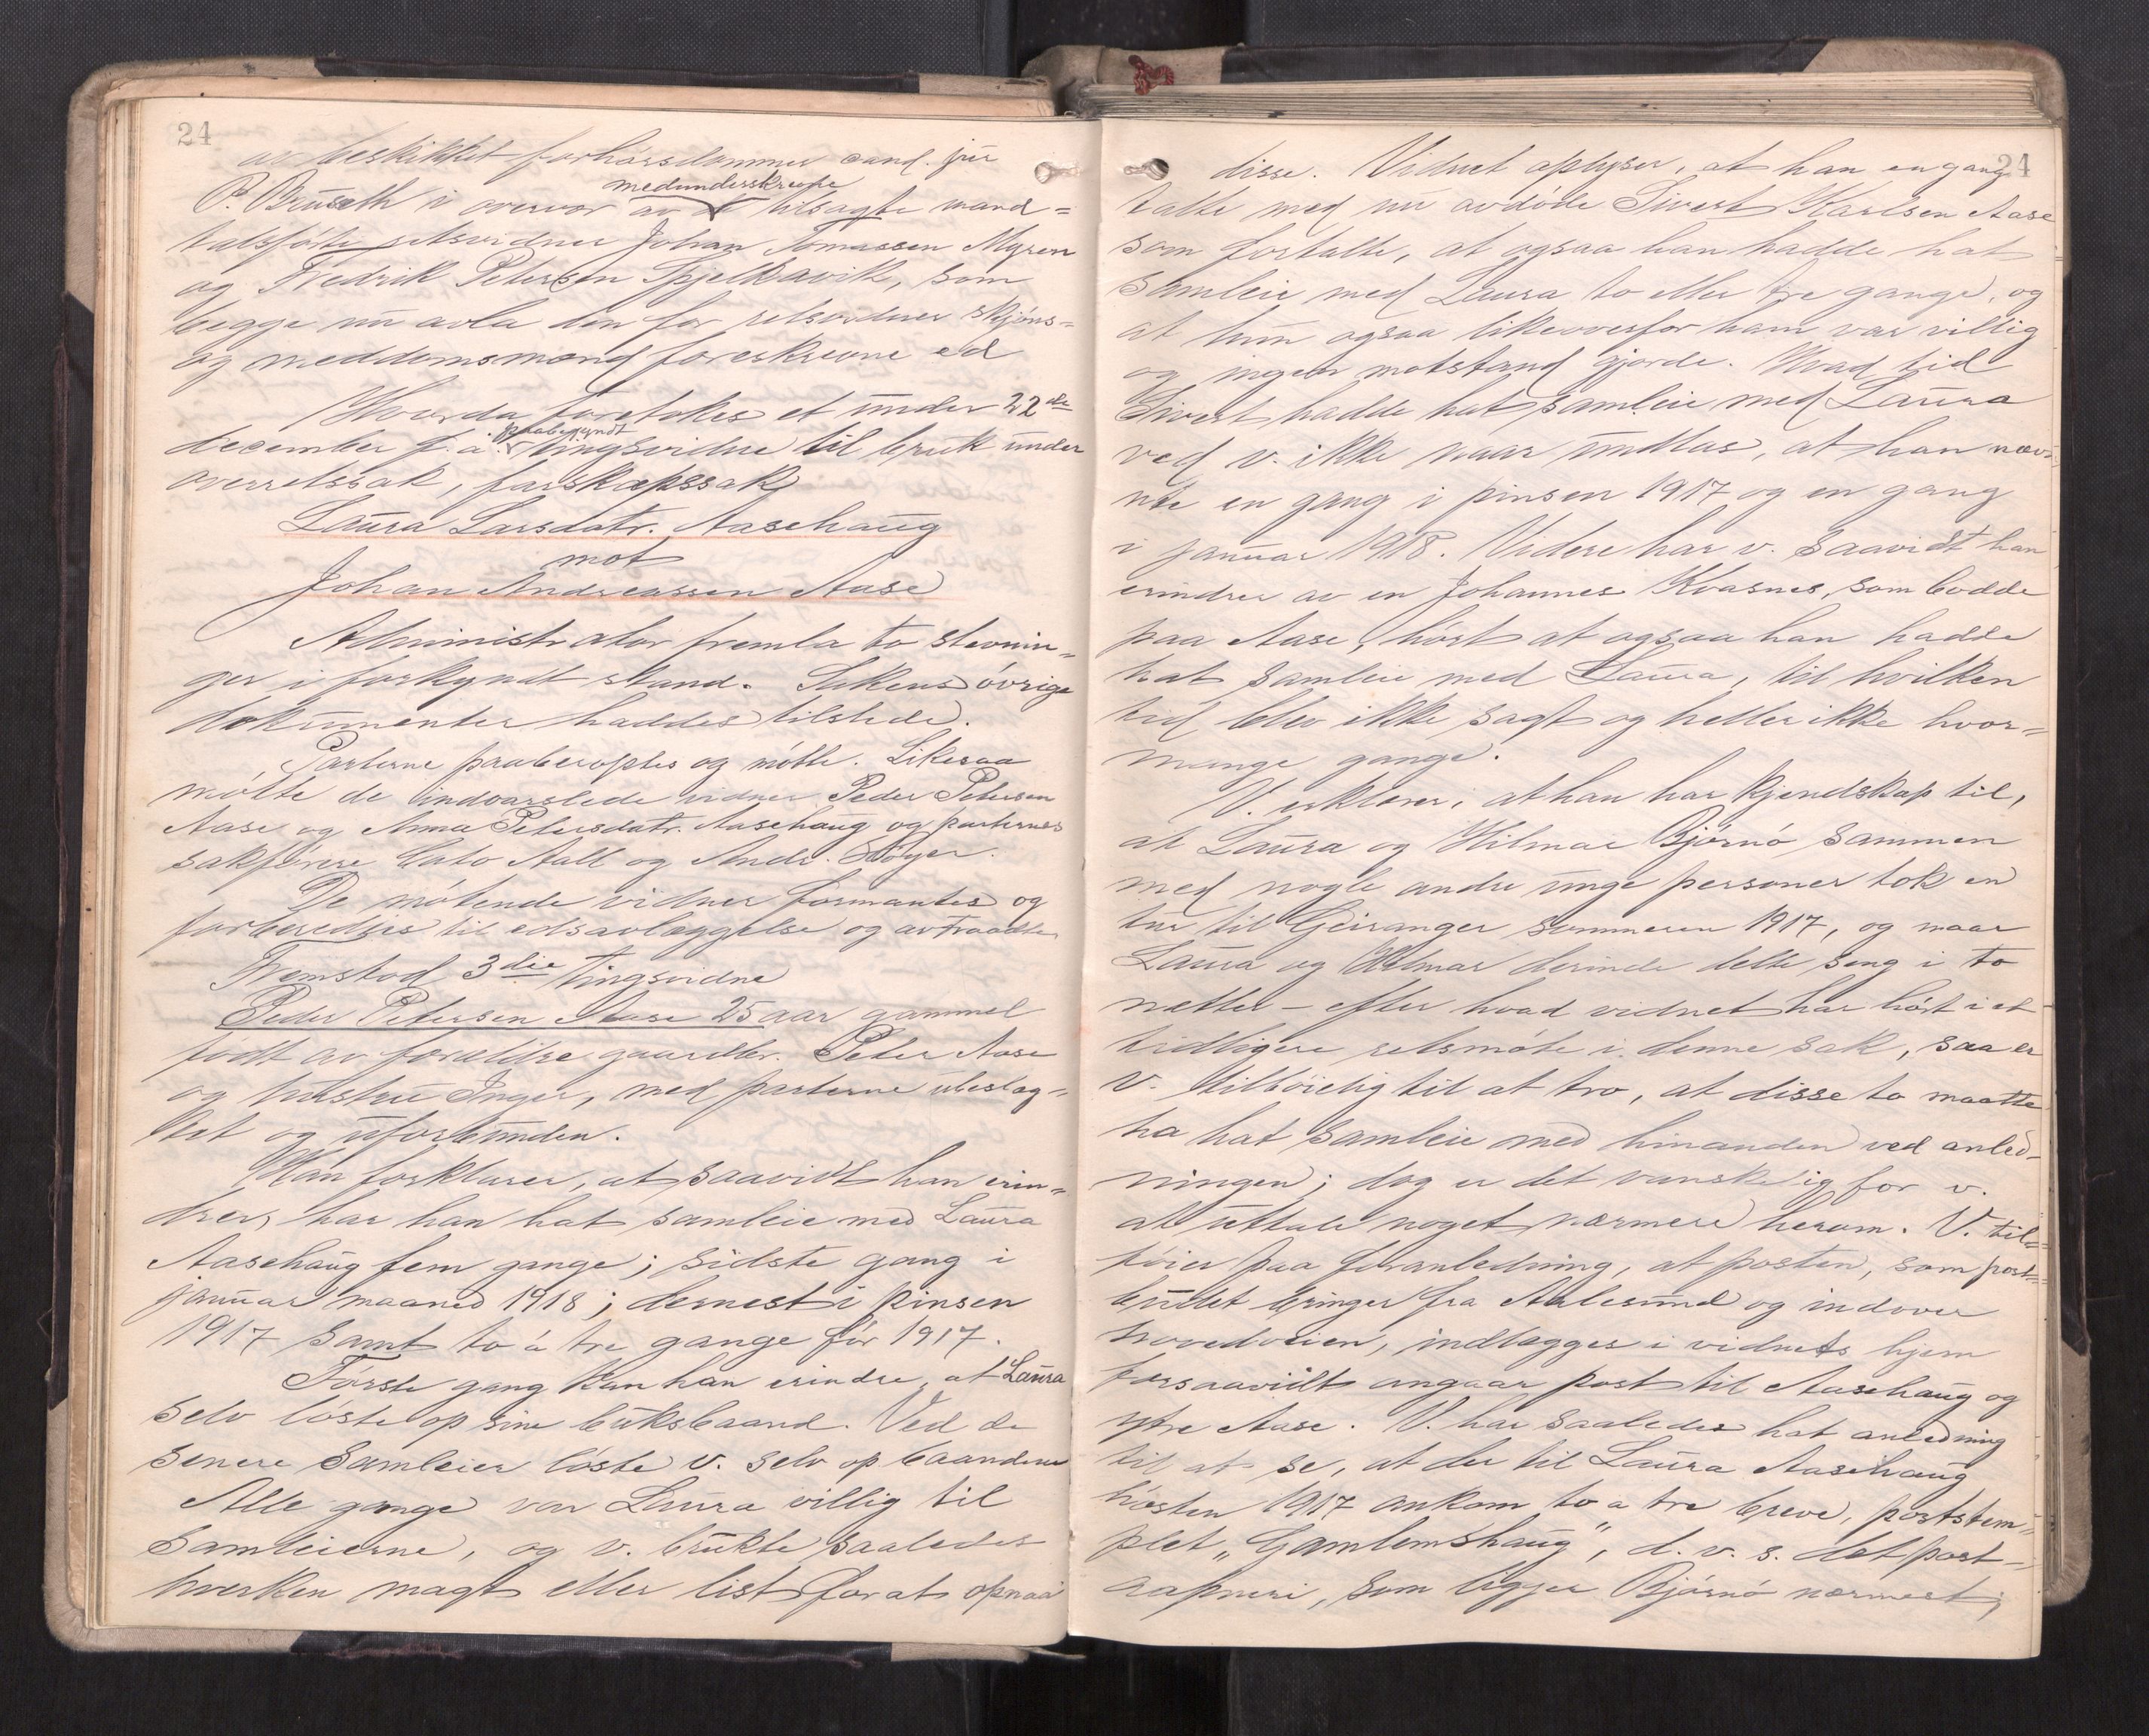 24
av beskikket forhørsdommer cand. jur
P. Brüseth i overvær av medunderskrevne tilsagte mand=
talsførte retsvidner Johan Tomassen Myren
og Fredrik Petersen Spjelkavik, som
begge nu avla den for retsvidner skjøns-
og meddomsmænd foreskrevne ed
Hvorda foretokes et under 22de
december f. å. paabegyndt tingsvidne til bruk under
overretssak, farskapssak
Laura Larsdatr. Aasehaug
mot
Johan Andreassen Aase
Administrator fremla to stevnin=
ger i forkyndt stand. Sakens øvrige
dokumenter haddes tilstede.
Parterne paaberoptes og møtte. Likesaa
møtte de indvarslede vidner Peder Petersen
Aase og Anna Petersdatr. Aasehaug og parternes
sakførere Cato Aall og Andr. Røyer.
De møtende vidner formantes og
forberedtes til edsavlæggelse og avtraadte
Fremstod 3die tingsvidne
Peder Petersen Aase 25 aar gammel
født av forældre gaardbr. Peter Aase
og hustru Inger, med parterne ubeslæg=
tet og uforbunden.
Han forklarer, at saavidt han erin=
drer, har han hat samleie med Laura
Aasehaug fem gange; sidste gang i
januar maaned 1918; dernest i pinsen
1917 samt to á tre gange før 1917.
Første gang kan han erindre, at Laura
selv løste op sine buksbaand. Ved de
senere samleier løste v. selv op baandene
Alle gange var Laura villig til
samleierne, og v. brukte saaledes
hverken magt eller list for at opnaa
24
disse. Vidnet oplyser, at han engang
talte med nu avdøde Sivert Karlsen Aase
som fortalte, at ogsaa han hadde hat
samleie med Laura to eller tre gange, og
at hun ogsaa likeoverfor ham var villig
og ingen motstand gjorde. Hvad tid
Sivert hadde hat samleie med Laura
ved v. ikke naar undtas, at han næv=
nte en gang i pinsen 1917 og en gang
i januar 1918. Videre har v. saavidt han
erindrer av en Johannes Kvasnes, som bodde
paa Aase, hørt at ogsaa han hadde
hat samleie med Laura, til hvilken
tid blev ikke sagt og heller ikke hvor=
mange gange.
V. erklærer, at han har kjendskap til,
at Laura og Hilmar Bjørnø sammen
med nogle andre unge personer tok en
tur til Geiranger sommeren 1917, og naar
Laura og Hilmar derinde delte seng i to
nætter – efter hvad vidnet har hørt i et
tidligere retsmøte i denne sak, saa er
v. tilbøielig til at tro, at disse to maatte
ha hat samleie med hinanden ved anled-
ningen; dog er det vanskelig for v.
at uttale noget nærmere herom. V. til=
føier paa foranledning, at posten, som post=
budet bringer fra Aalesund og indover
hovedveien, indlægges i vidnets hjem
forsaavidt angaar post til Aasehaug og
ytre Aase. V. har saaledes hat anledning
til at se, at der til Laura Aasehaug
høsten 1917 ankom to a tre breve, poststem=
plet „Gamlemshaug", d. v. s. det post-
aapneri, som ligger Bjørnø nærmest,